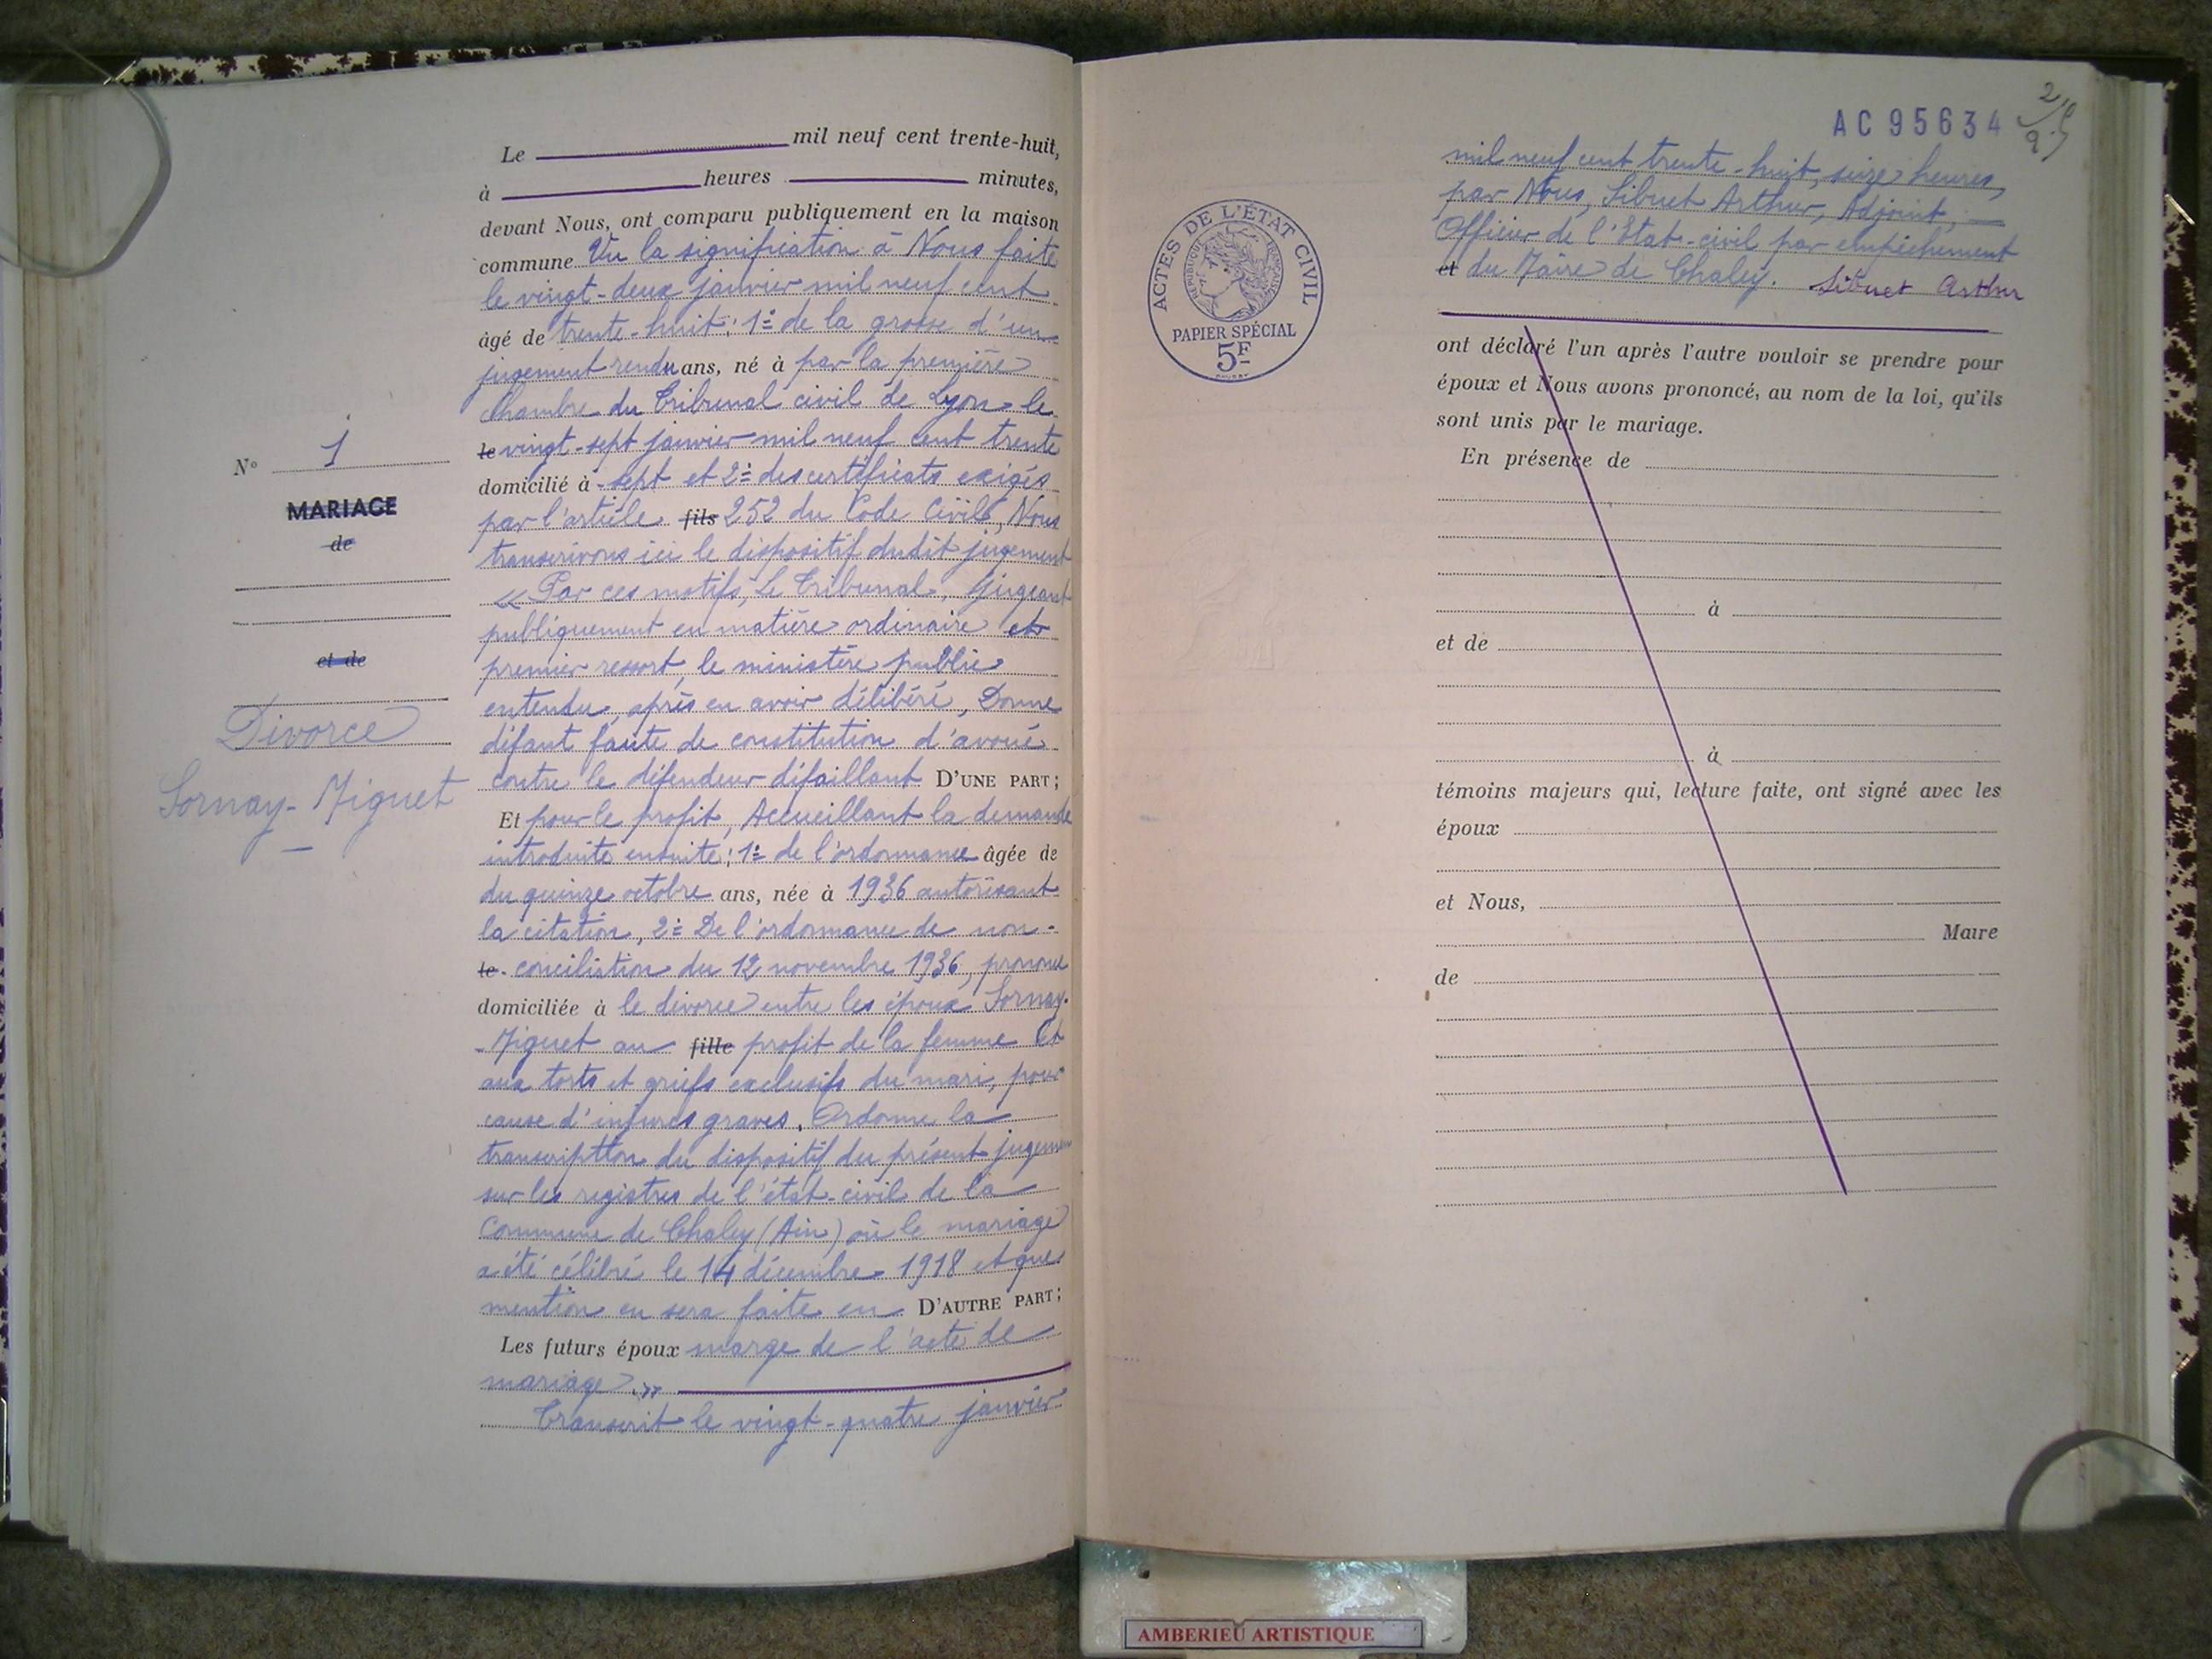 Le mil neuf cent trente-huit,
à heures minutes,
devant Nous, ont comparu publiquement en la maison
commune Vu la signification à Nous faite
le vingt-deux janvier mil neuf cent
âgé de trente-huit; 1º de la grosse d'un
jugement rendu ans, né à par la première
Chambre du Tribunal civil de Lyon le
le vingt-sept janvier mil neuf cent trente
domicilié à -sept et 2º des certificats exigés
par l'article fils 252 du Code Civil, Nous
transcrivons ici le dispositif dudit jugement
« Par ces motifs, Le Tribunal, Jugeant
publiquement en matière ordinaire et
premier ressort, le ministère public
entendu, après en avoir délibéré, Donne
défaut faute de constitution d'avoué
contre le défendeur défaillant D'UNE PART;
Et pour le profit, Accueillant la demande
introduite ensuite; 1º de l'ordonnance âgée de
du quinze octobre ans, née à 1936 autorisant
la citation, 2º De l'ordonnance de non-
le conciliation du 12 novembre 1936, prononce
domiciliée à le divorce entre les époux Sornay-
-Miguet au fille profit de la femme Et
aux torts et griefs exclusifs du mari, pour
cause d'injures graves. Ordonne la
transcription du dispositif du présent jugement
sur les registres de l'état-civil de la
Commune de Chaley (Ain) où le mariage
a été célébré le 14 décembre 1918 et que
mention en sera faite en D'AUTRE PART;
Les futurs époux marge de l'acte de
mariage ».
Transcrit le vingt-quatre janvier
Nº 1
MARIAGE
de
et de
Divorce
Sornay-Miguet
AC 95634
mil neuf cent trente-huit, seize heures,
par Nous, Sibuet Arthur, Adjoint,
Officier de l'Etat-civil par empêchement
et du Maire de Chaley. Sibuet Arthur
ACTES DE L'ÉTAT CIVIL
RÉPUBLIQUE FRANÇAISE
PAPIER SPÉCIAL
5F
ont déclaré l'un après l'autre vouloir se prendre pour
époux et Nous avons prononcé, au nom de la loi, qu'ils
sont unis par le mariage.
En présence de
à
et de
à
témoins majeurs qui, lecture faite, ont signé avec les
époux
et Nous,
Maire
de
AMBERIEU ARTISTIQUE